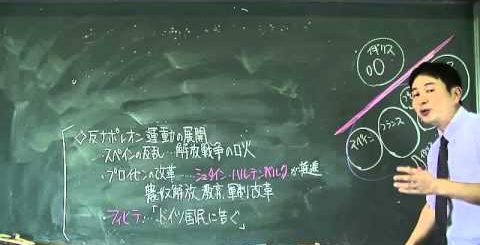 ◇反ナポレオン運動の展開
・スペインの反乱…解放戦争の口火
・プロイセンの改革……シュタイン・ハルデンベルクが推進
農奴解放、教育、軍制改革
フィヒテ:「ドイツ国民に告ぐ」
イギリス
フランス
スペイン